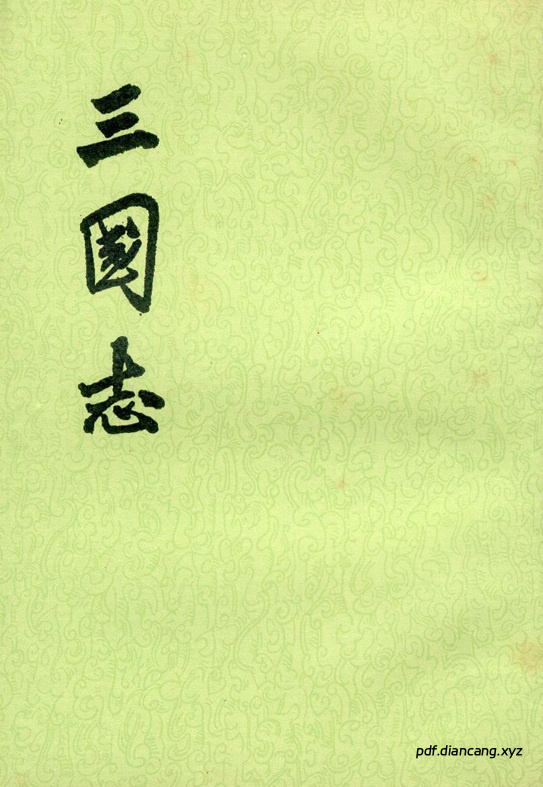 三國志
pdf.diancang.xyz